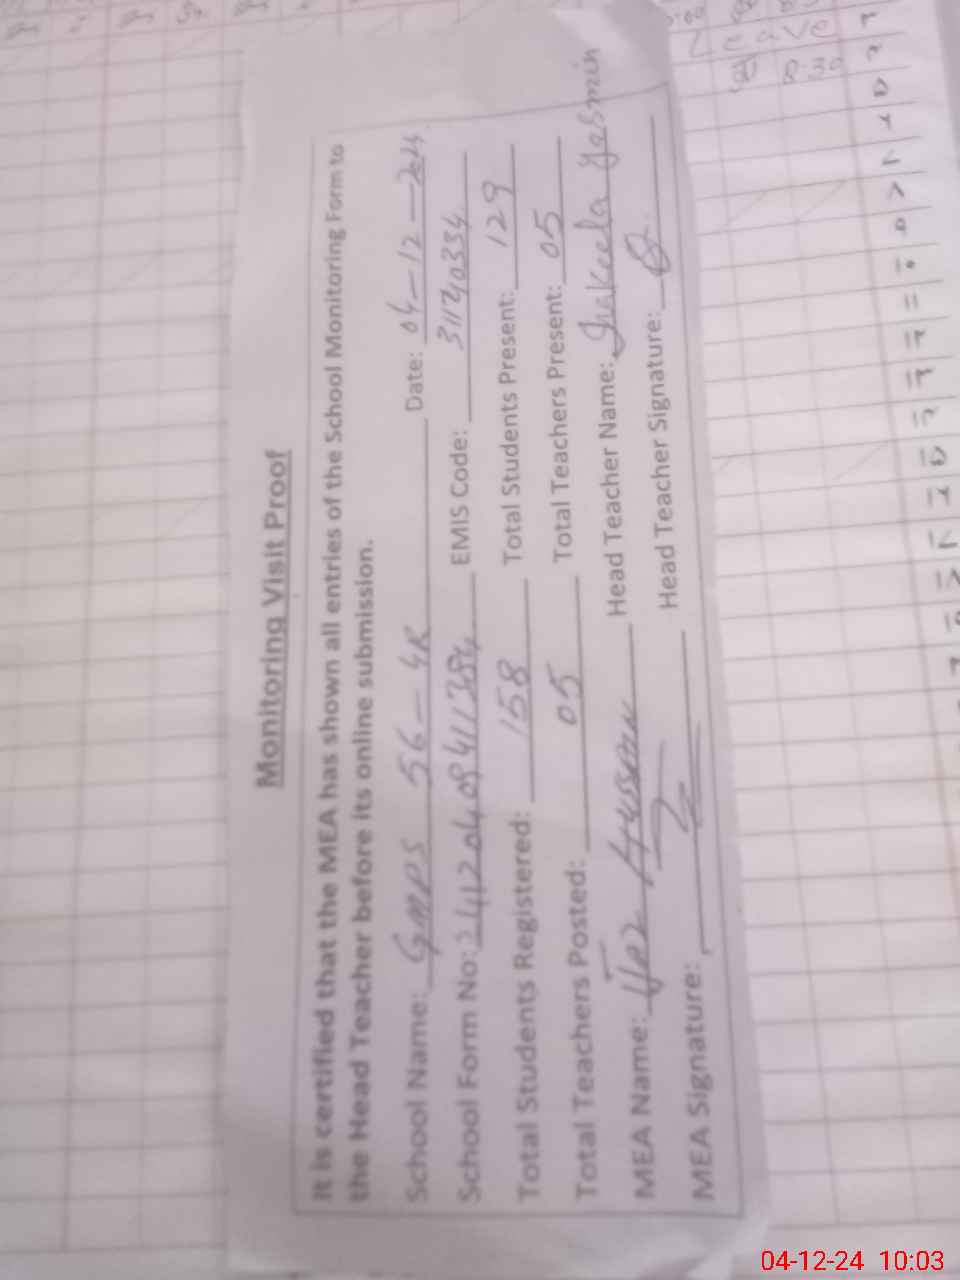 Monitoring Visit Proof
It is certified that the MEA has shown all entries of the School Monitoring Form to
the Head Teacher before its online submission.
School Name: GMPS 56-4R Date: 04-12-2024
School Form No: 24120408411384 EMIS Code: 31140334
Total Students Registered: 158 Total Students Present: 129
Total Teachers Posted: 05 Total Teachers Present: 05
MEA Name: Hussain Head Teacher Name: Shakeela Yasmin
MEA Signature: Head Teacher Signature:
Leave
8:30
04-12-24 10:03